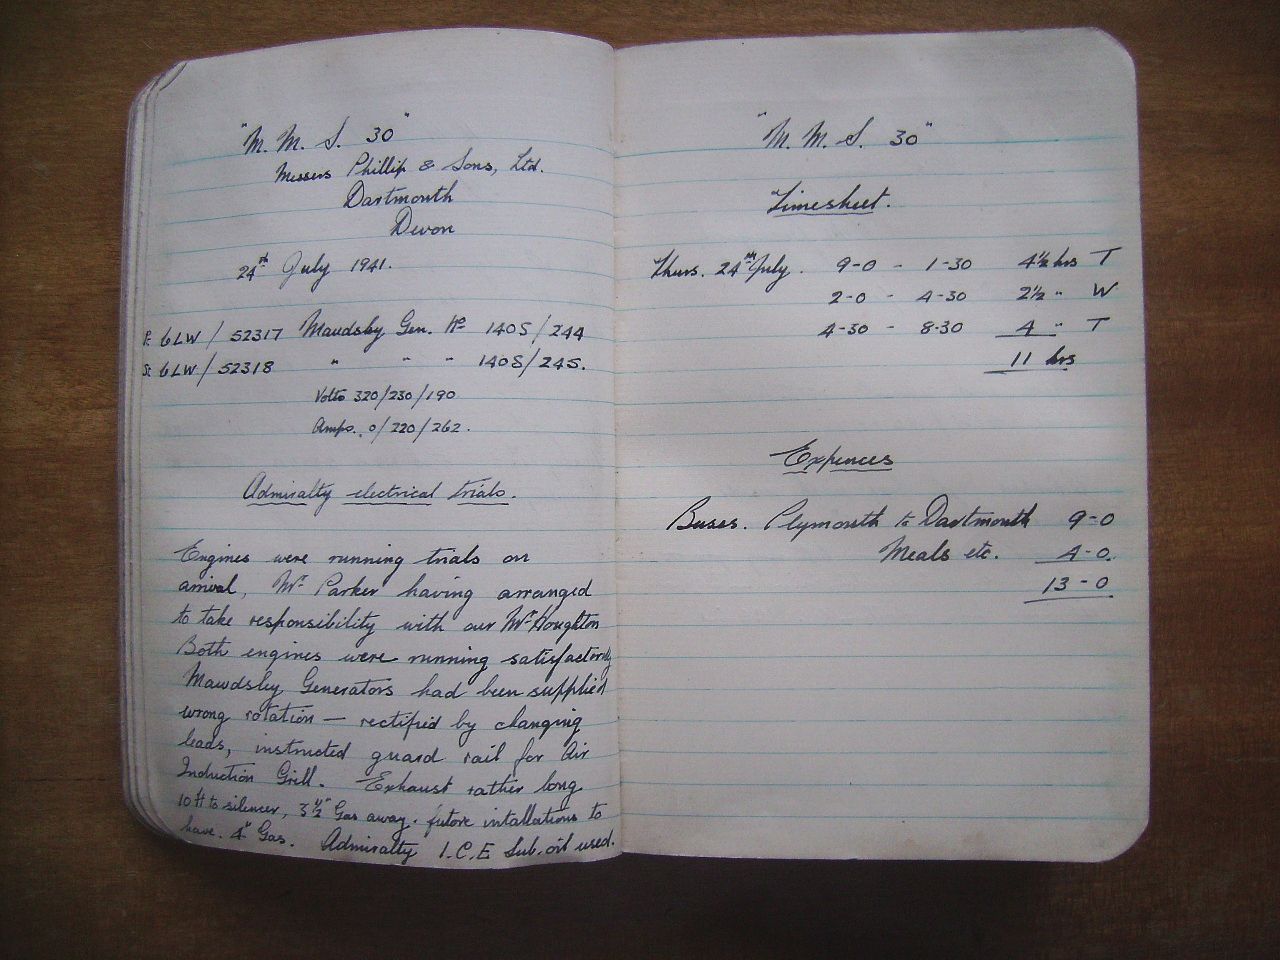 "M. M. S. 30"
Messers Phillip & Sons, Ltd.
Dartmouth
Devon
24th July 1941.
P. 6LW / 52317 Mawdsley Gen. No 140S/244
S. 6LW / 52318 " " " 140S/245.
Volts 320/230/190
Amps. 0/220/262.
Admiralty electrical trials.
Engines were running trials on
arrival, Mr Parker having arranged
to take responsibility with our Mr Houghton
Both engines were running satisfactorily
Mawdsley Generators had been supplied
wrong rotation — rectified by changing
leads, instructed guard rail for Air
Induction Grill. Exhaust rather long
10 ft to silencer, 3½" Gas away. future intallations to
have. 4" Gas. Admiralty I.C.E Lub. oil used.
"M. M. S. 30"
Timesheet.
Thurs. 24th July. 9-0 - 1-30 4½ hrs T
2-0 - 4-30 2½ " W
4-30 - 8-30 4 " T
11 hrs
Expences
Buses. Plymouth to Dartmouth 9-0
Meals etc. 4-0.
13-0